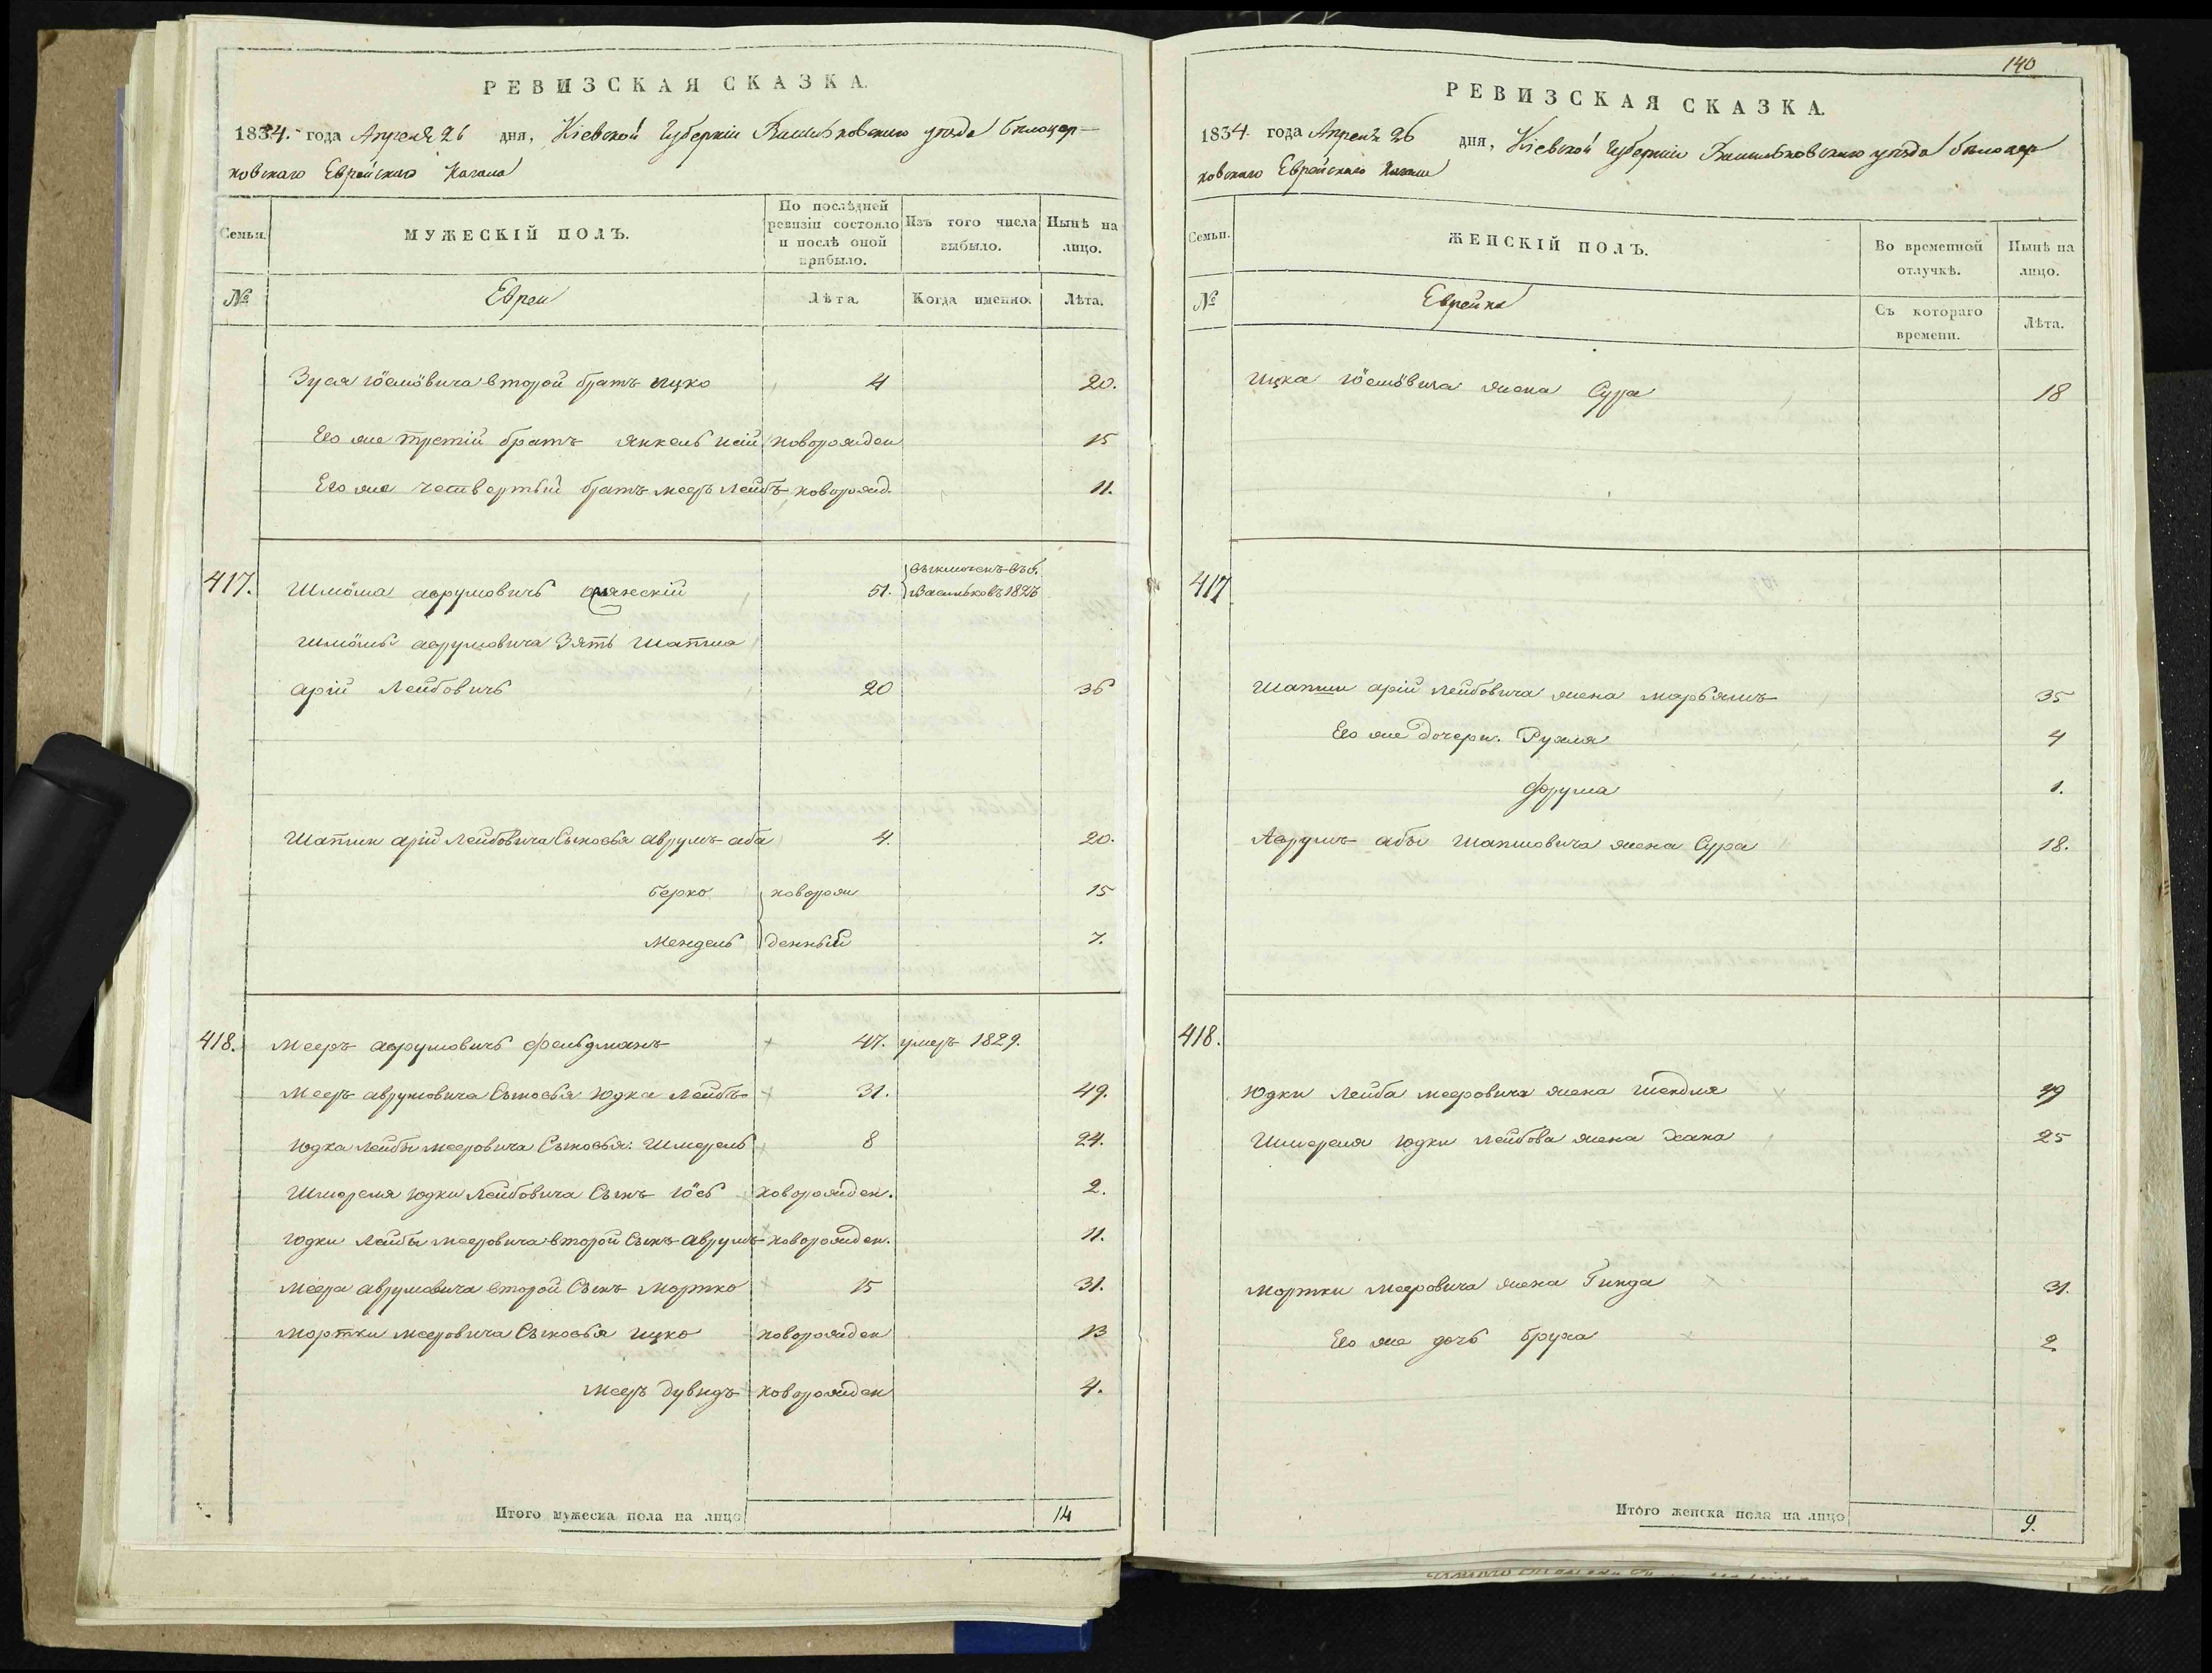 РЕВИЗСКАЯ СКАЗКА.
1834. года Апреля 26 дня, Кіевской Губерніи Васильковскаго уѣзда Бѣлоцер-
ковскаго Еврейскаго Кагала
Семьи.
МУЖЕСКІЙ ПОЛЪ.
По послѣдней ревизіи состояло и послѣ оной прибыло.
Изъ того числа выбыло.
Нынѣ на лицо.
№
Евреи
Лѣта.
Когда именно.
Лѣта.
Зуся Іосіовича второй братъ Ицко 4 20.
Его же третій братъ Янкель новорожден 15
Его же четвертый братъ Мееръ Лейбъ новорожд. 11.
417. Шмоиla аврумовичь 51. выключенъ въ г. Васильковъ
аврумовича Зять Шапша
арій Лейбовичь 20 36
Шапши арій Лейбовича Сыновья аврумъ аба 4. 20.
Берко новорож 15
Мендель денный 7.
418. Мееръ аврумовичь фельдманъ 47. умеръ 1829.
Мееръ аврумовича Сыновья Юдка Лейбъ 31. 49.
Юдка Лейбы Мееровича Сыновья: Шмерель 8 24.
Шмереля Юдки Лейбовича Сынъ Іось новорожден. 2.
Юдки Лейбы Мееровича второй Сынъ аврумъ новорожден. 11.
Меера аврумовича второй Сынъ Мортко 15 31.
Мортки Мееровича Сыновья Ицко новорожден 13
Мееръ дувидъ новорожден 4.
Итого мужеска пола на лицо 14
140
РЕВИЗСКАЯ СКАЗКА.
1834. года Апреля 26 дня, Кіевской Губерніи Васильковскаго уѣзда Бѣлоцер
ковскаго Еврейскаго Кагала
Семьи.
ЖЕНСКІЙ ПОЛЪ.
Во временной отлучкѣ.
Нынѣ на лицо.
№
Еврейка
Съ котораго времени.
Лѣта.
Ицка жена Сура 18
417
Шапши арій Лейбовича жена Марьямъ 35
Его же дочери. Рухля 4
Фрума 1.
Аврумъ абы Шапшовича жена Сура 18.
418.
Юдки Лейба Мееровича жена Шендля 49
Шмереля Юдки Лейбова жена Хана 25
Мортки Мееровича жена Гинда 31.
Его же дочь Бруха 2
Итого женска пола на лицо 9.